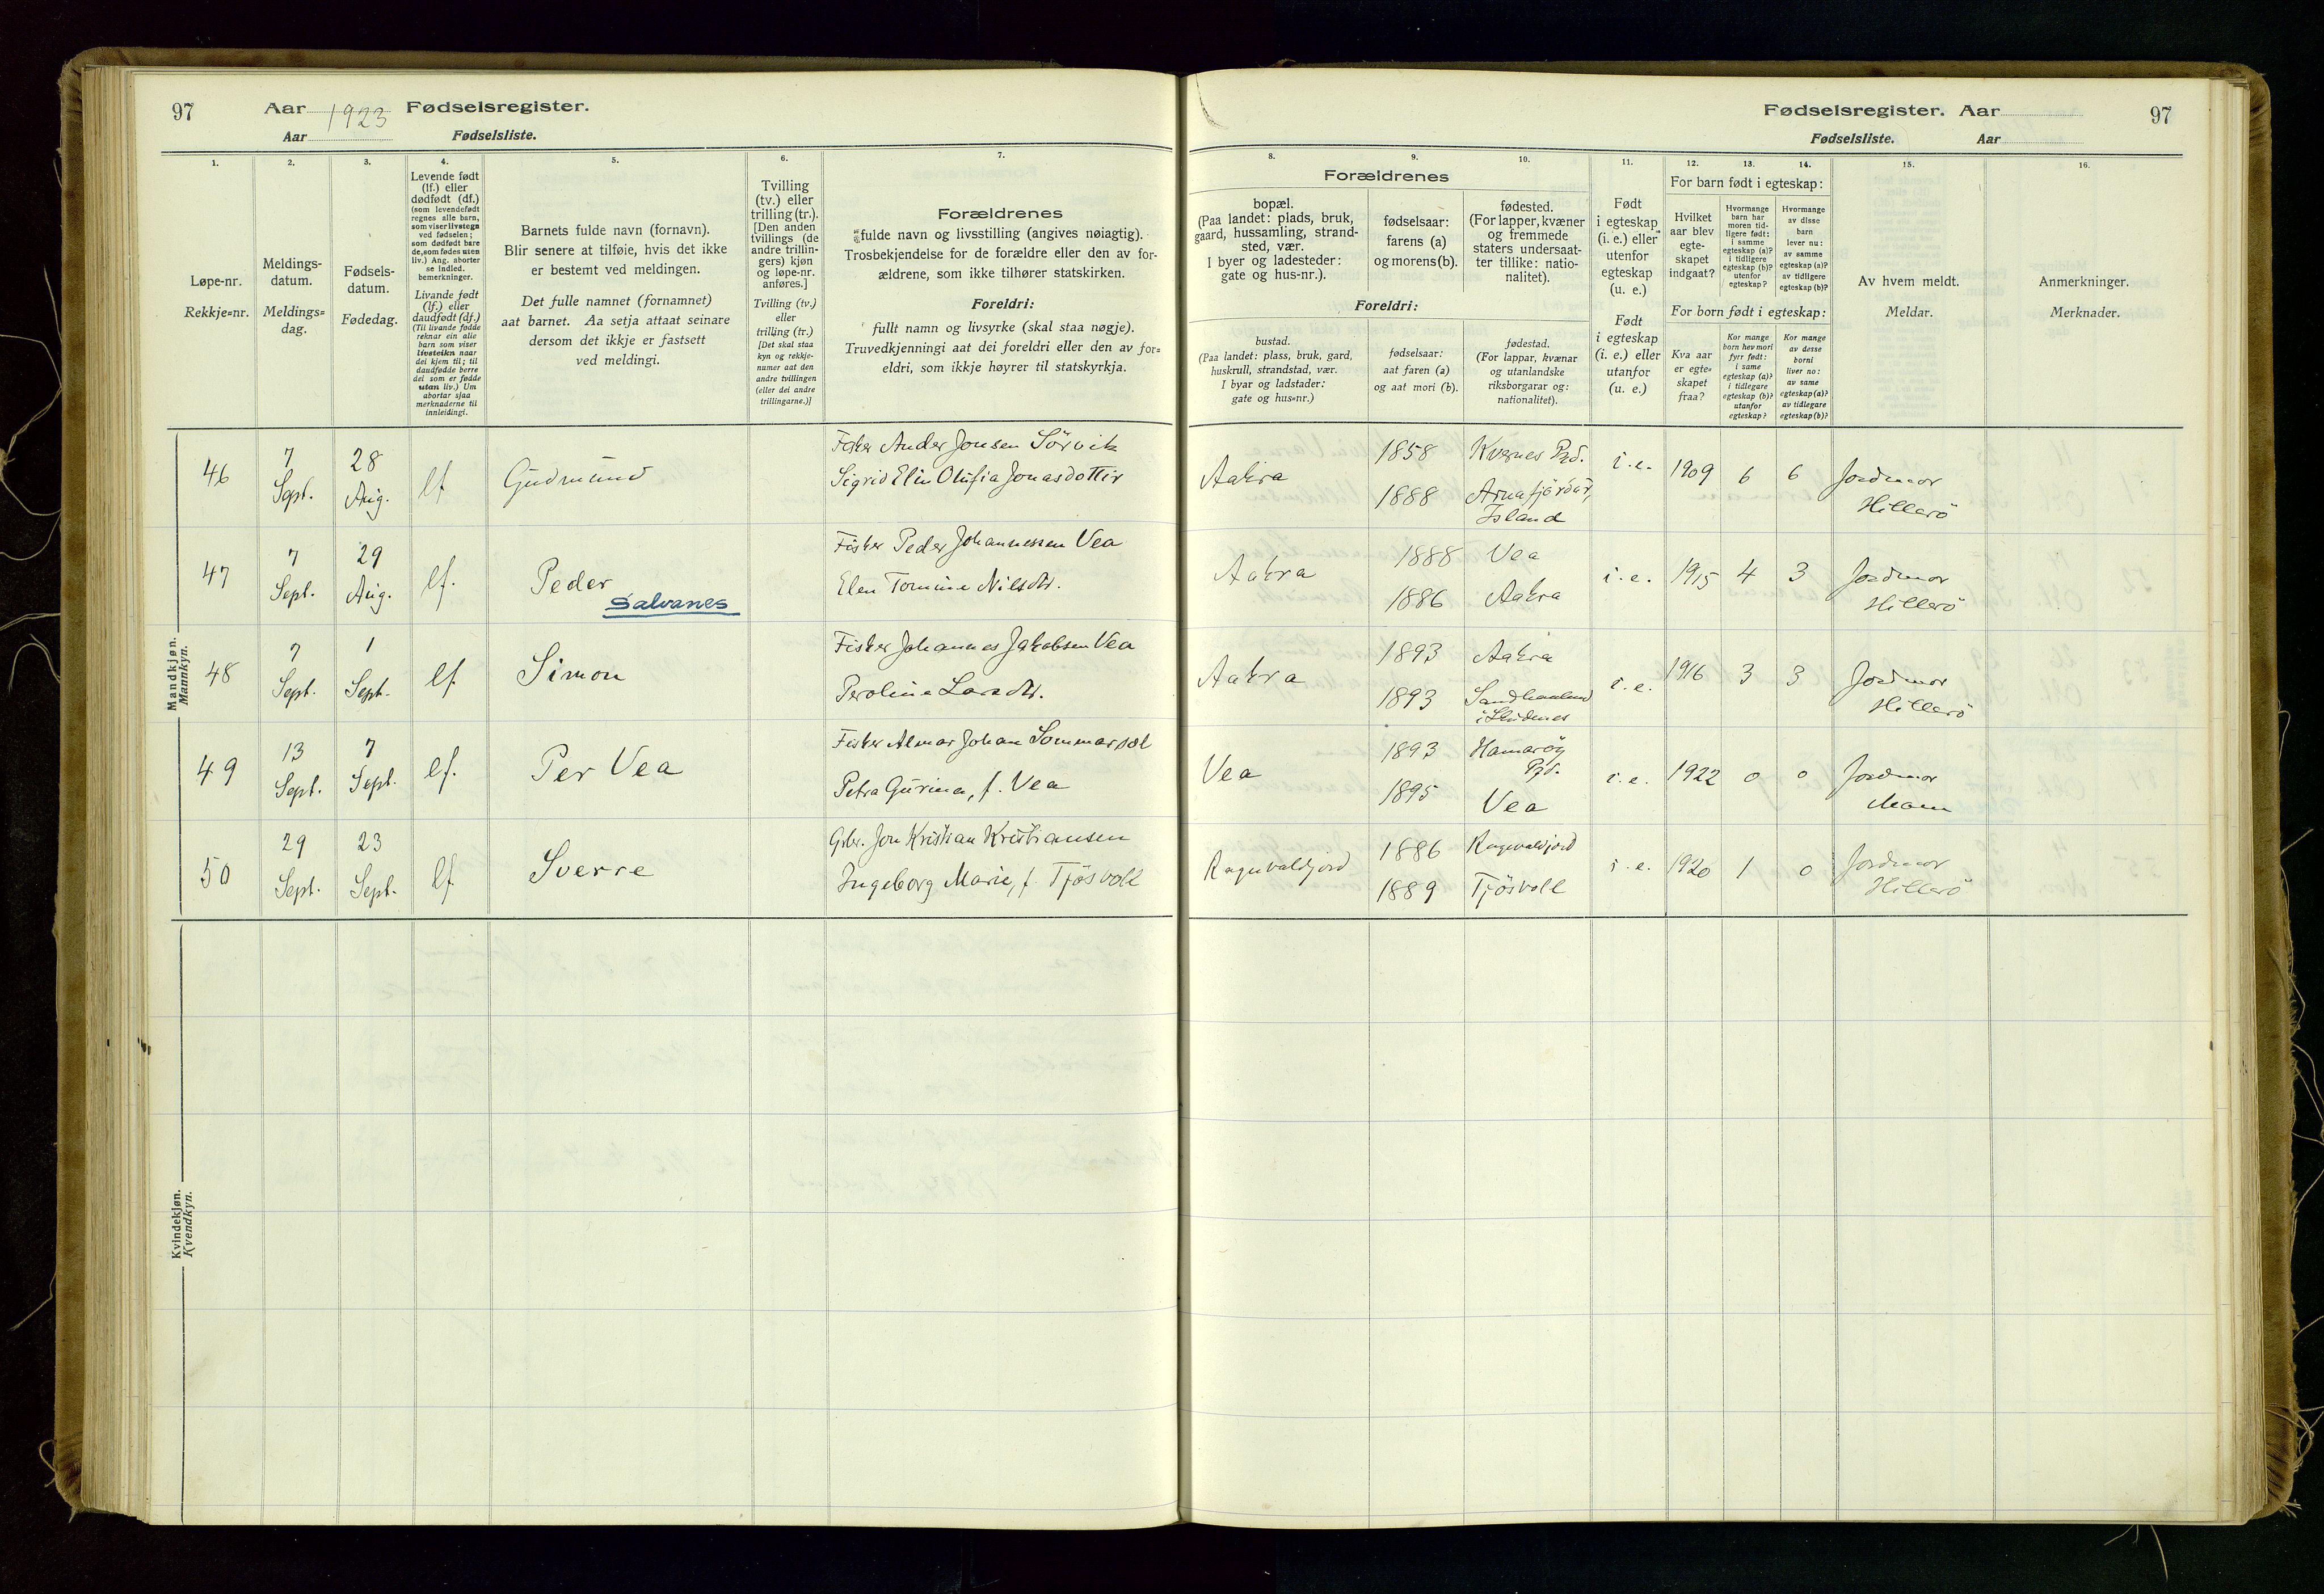 97 Aar 1923 Fødselsregister.
Aar Fødselsliste.
Fødselsregister. Aar 97
Fødselsliste. Aar
1. 2. 3. 4. 5. 6. 7.
Løpe-nr.
Rekkje=nr.
Meldings-
datum.
Meldings=
dag.
Fødsels-
datum.
Fødedag.
Levende født
(lf.) eller
dødfødt (df.)
(som levendefødt
regnes alle barn,
som viser livstegn
ved fødselen;
som dødfødt bare
de, som fødes uten
liv.) Ang. aborter
se indled.
bemerkninger.
Livande født
(lf.) eller
daudfødt (df.)
(Til livande fødde
reknar ein alle
barn som viser
livsteikn naar
dei kjem til; til
daudfødde berre
dei som er fødde
utan liv.) Um
abortar sjaa
merknaderne til
innleidingi.
Barnets fulde navn (fornavn).
Blir senere at tilføie, hvis det ikke
er bestemt ved meldingen.
Det fulle namnet (fornamnet)
aat barnet. Aa setja attaat seinare
dersom det ikkje er fastsett
ved meldingi.
Tvilling
(tv.) eller
trilling (tr.).
[Den anden
tvillings (de
andre trillin-
gers) kjøn
og løpe-nr.
anføres.]
Tvilling (tv.)
eller
trilling (tr.)
[Det skal staa
kyn og rekkje-
numer aat den
andre tvillingen
(eller dei andre
trillingarne.)]
Forældrenes
fulde navn og livsstilling (angives nøiagtig).
Trosbekjendelse for de forældre eller den av for-
ældrene, som ikke tilhører statskirken.
Foreldri:
fullt namn og livsyrke (skal staa nøgje).
Truvedkjenningi aat dei foreldri eller den av for=
eldri, som ikkje høyrer til statskyrkja.
8. 9. 10. 11. 12. 13. 14. 15. 16.
Forældrenes
bopæl.
(Paa landet: plads, bruk,
gaard, hussamling, strand-
sted, vær.
I byer og ladesteder:
gate og hus-nr.).
fødselsaar:
farens (a)
og morens (b).
fødested.
(For lapper, kvæner
og fremmede
staters undersaat-
ter tillike: natio-
nalitet).
Foreldri:
bustad.
(Paa landet: plass, bruk, gard,
huskrull, strandstad, vær.
I byar og ladstader:
gate og hus=nr.)
fødselsaar:
aat faren (a)
og aat mori (b).
fødestad.
(For lappar, kvænar
og utanlandske
riksborgarar og:
nationalitet).
Født
i egteskap
(i. e.) eller
utenfor
egteskap
(u. e.)
Født
i egteskap
(i. e.) eller
utanfor
(u. e.)
For barn født i egteskap:
Hvilket
aar blev
egte-
skapet
indgaat?
Hvormange
barn har
moren tid-
ligere født:
i samme
egteskap (a)?
i tidligere
egteskap (b)?
utenfor
egteskap?
Hvormange
av disse
barn
lever nu:
av samme
egteskap (a)?
av tidligere
egteskap (b)?
For born født i egteskap:
Kva aar
er egte=
skapet
fraa?
Kor mange
born hev mori
fyrr født:
i same
egteskap (a)?
i tidlegare
egteskap (b)?
utanfor
egteskap?
Kor mange
av desse
borni
liver no:
av same
egteskap (a)?
av tidlegare
egteskap (b)?
Av hvem meldt.
Meldar.
Anmerkninger.
Merknader.
Mandkjøn.
Mannkyn.
46 7 Sept. 28 Aug. lf Gudmund Fisker Ander Jonsen Sörvik
Sigrid Elin Olufia Jonasdottir
Aakra 1858 Kvernes Pgd. i.e. 1909 6 6 Jordmor
1888 Arnafjördur, Island Hillerö
47 7 Sept. 29 Aug. lf. Peder Salvanes Fisker Peder Johannessen Vea
Elen Tomine Nilsdtr.
Aakra 1888 Vea i.e. 1915 4 3 Jordmor
1886 Aakra Hillerö
48 7 Sept. 1 Sept. lf Simon Fisker Johannes Jakobsen Vea
Peroline Larsdtr.
Aakra 1893 Aakra i.e. 1916 3 3 Jordmor
1893 Sandhaaland i Skudenes Hillerö
49 13 Sept. 7 Sept. lf. Per Vea Fisker Almar Johan Sommarsel
Petra Gurina, f. Vea
Vea 1893 Hamaröy Pgd. i.e. 1922 0 0 Jordmor
1895 Vea
50 29 Sept. 23 Sept. lf Sverre Gbr. Jon Kristian Kristiansen
Ingeborg Marie, f. Tjösvoll
Ragnvaldjord 1886 Ragnvaldjord i.e. 1920 1 0 Jordmor
1889 Tjösvoll Hillerö
Kvindekjøn.
Kvendkyn.